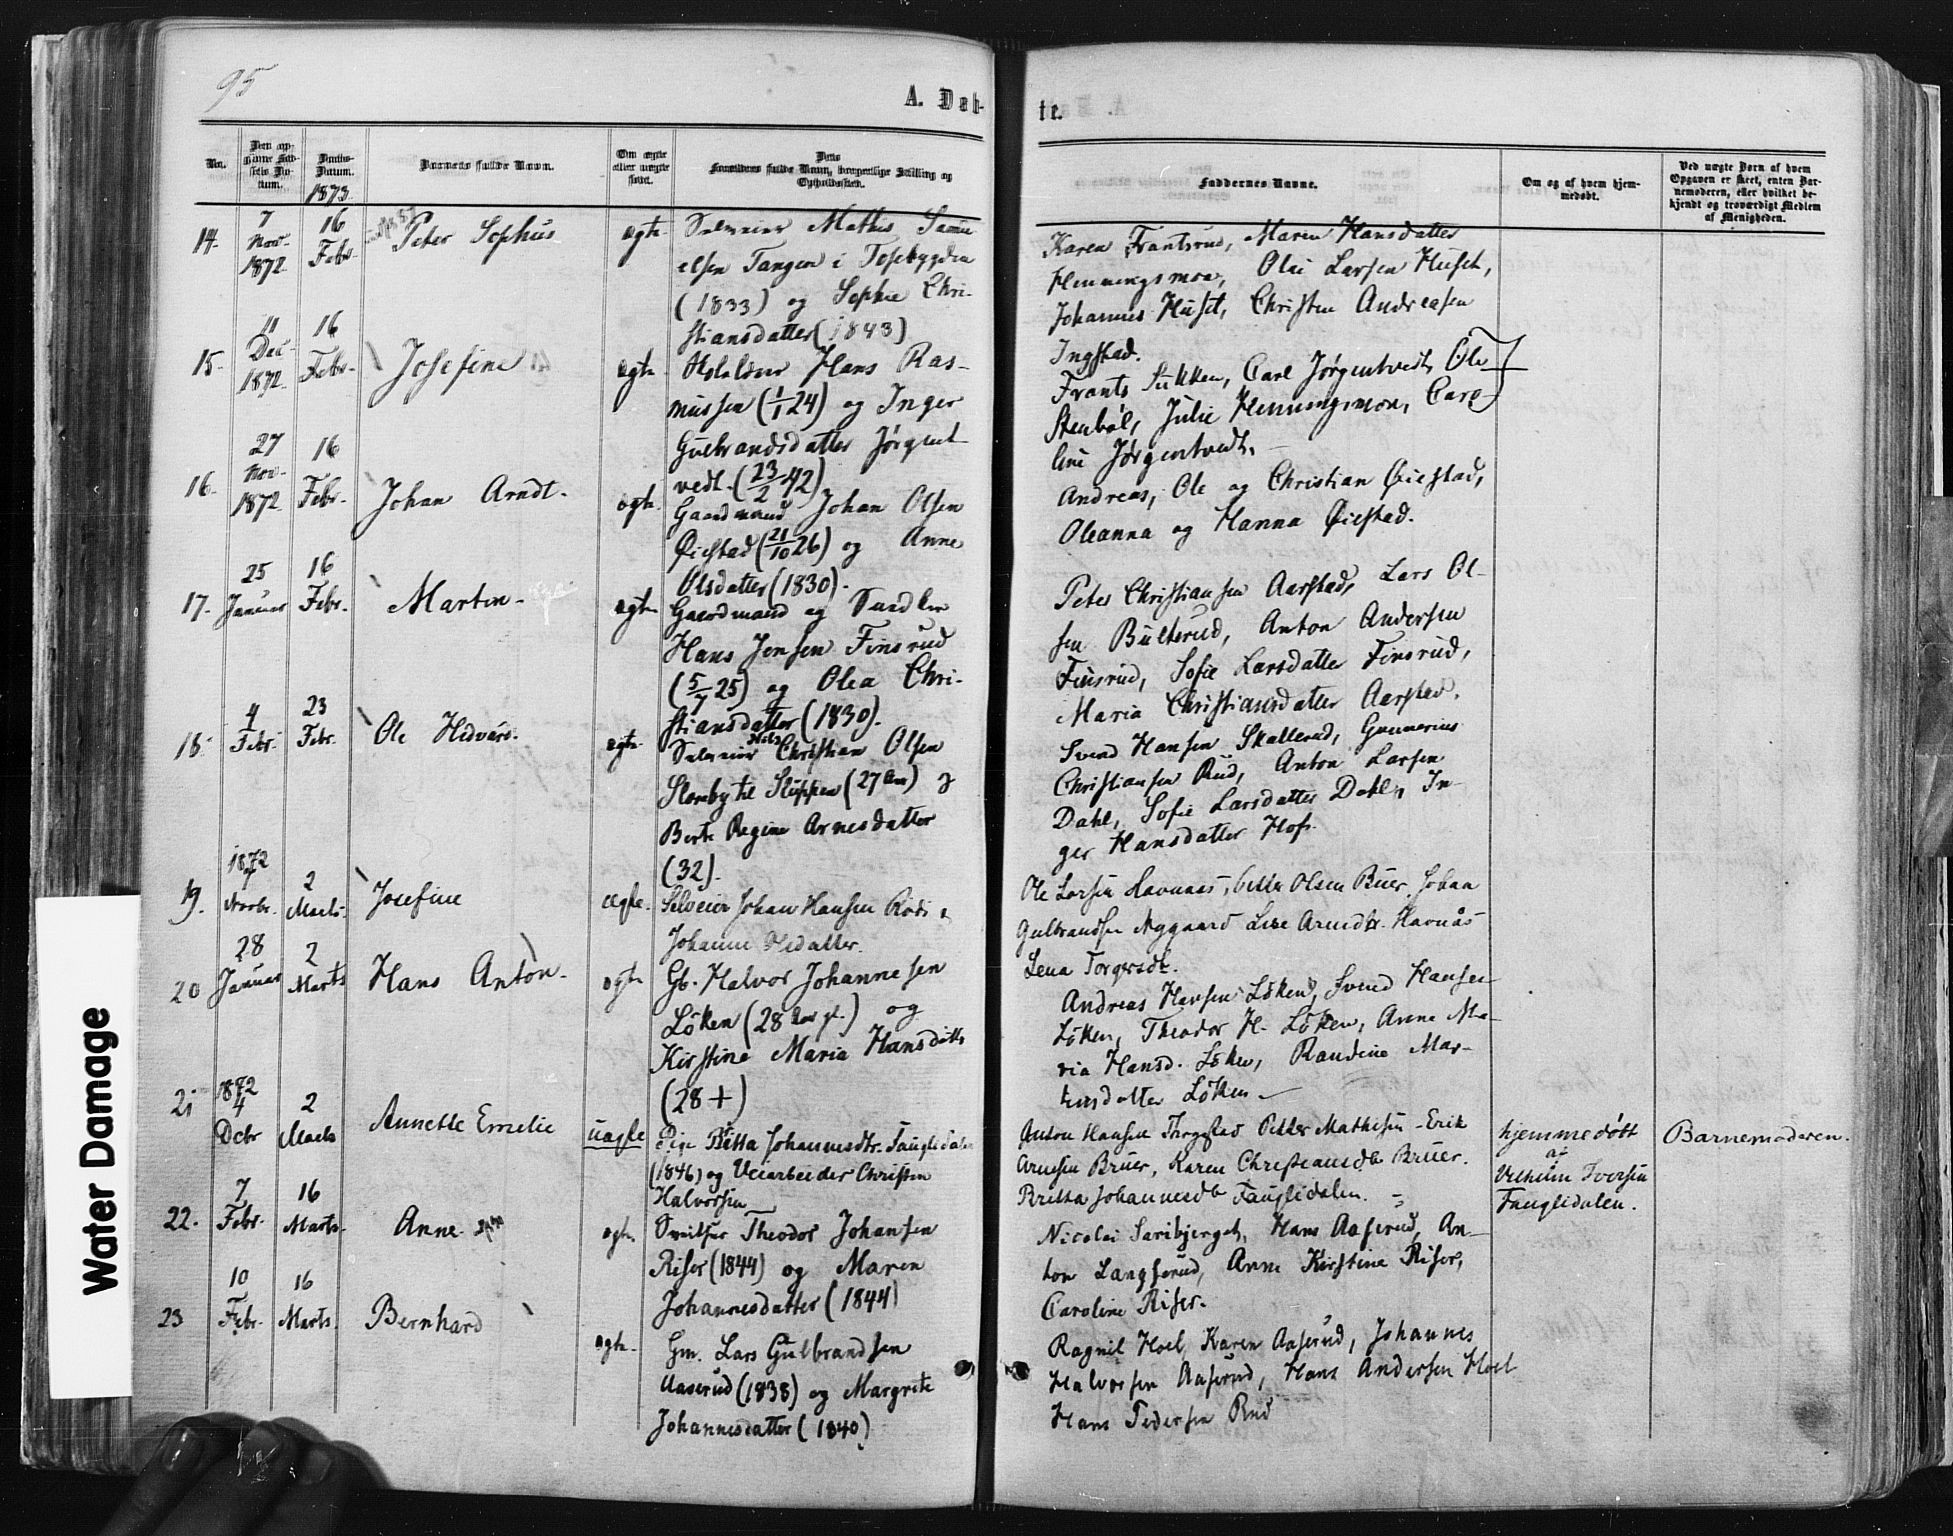 95
A. Døb-
te.
No.
Den op-
givne Fød-
sels Da-
tum.
Daabs-
Datum.
1873.
Barnets fulde Navn.
Om ægte
eller uægte
født.
Dets
Forældres fulde Navn, borgerlige Stilling og
Opholdssted.
Faddernes Navne.
Om og af hvem hjem-
medøbt.
Ved uægte Børn af hvem
Opgaven er skeet, enten Bar-
nemoderen, eller hvilket be-
kjendt og troværdigt Medlem
af Menigheden.
14.
7
Nov.
1872.
16
Febr.
Peter Sophus
ægte
Selveier Mathis Samu-
elsen Tangen i Tosebygden
(1833) og Sophie Chri-
stiansdatter (1843)
Karen Frantsrud, Maren Hansdatter
Henningsmon, Olai Larsen Huset,
Johannes Huset, Christen Andreasen
Ingstad.
15.
11
Dec.
1872.
16
Febr.
Josefine
ægte
Hans Ras-
mussen (1/1 24) og Inger
Gulbrandsdatter Jørgent-
vedt. (23/2 42)
Frants Sukken, Carl Jørgentvedt, Ole
Stenbøl, Julie Henningsmon, Caro-
line Jørgentvedt.
16.
27
Nov.
1872.
16
Febr.
Johan Arndt.
ægte
Gaardmand Johan Olsen
Øiestad (21/10 26) og Anne
Olsdatter (1830).
Andreas, Ole og Christian Øiestad,
Oleanna og Hanna Øiestad.
17.
25
Januar
16
Febr.
Martin
ægte
Gaardmand og Snedker
Hans Jensen Finsrud
(5/7 25) og Olea Chri-
stiansdatter (1830).
Peter Christiansen Aarstad, Lars Ol-
sen Bulterud, Anton Andersen
Finsrud, Sofie Larsdatter Finsrud,
Maria Christiansdatter Aarstad.
18.
4
Febr.
23
Febr.
Ole Hidvard.
ægte
Selveier Nils Christian Olsen
Slomby til Slippen (27 Aar) og
Berte Regine Arnesdatter
(32).
Svend Hansen Skallerud, Gunnerius
Christiansen Rud, Anton Larsen
Dahl, Sofie Larsdatter Dahl, In-
ger Hansdatter Hof.
19.
1872
7
Novbr.
2
Marts.
Josefine
ægte.
Selveier Johan Hansen Rødi &
Johanne Oldatter.
Ole Larsen Havnaas, Petter Olsen Buer, Johan
Gulbrandsen Nygaard Lise Arnesdtr. Havnås
Lena Torgersdt.
20
28
Januar
2
Marts
Hans Anton.
ægte
Gb. Halvor Johannesen
Løken (28 Aar gl.) og
Kirstine Maria Hansdatter
(28 +)
Andreas Hansen Løken, Svend Hansen
Løken, Theodor H. Løken, Anne Ma-
ria Hansd. Løken, Randine Mar-
tinsdatter Løken.
21
1872
4
Dcbr
2
Marts
Annette Emelie
uægte
Pige Britta Johannesdtr. Fauglidalen
(1846) og Veiarbeider Christen
Halvorsen
Anton Hansen Thrygstad Petter Mathisen - Erik
Arnesen Bruer, Karen Christiansdtr Bruer.
Britta Johannesdtr Fauglidalen.
hjemmedøbt
af
Vilhelm Iversen
Fauglidalen.
Barnemoderen.
22.
7
Febr.
16
Marts.
Anne
ægte.
Theodor Johansen
Riser (1844) og Maren
Johannesdatter (1844)
Nicolai Saribjerget, Hans Aaserud, An-
ton Langserud, Anne Kirstine Riser,
Caroline Riser.
23
10
Febr.
16
Marts.
Bernhard
ægte.
Gm. Lars Gulbrandsen
Aaserud (1838) og Margrete
Johannesdatter (1840)
Ragnil Hoel, Karen Aaserud, Johannes
Halvorsen Aaserud, Hans Andersen Hoel
Hans Pedersen Rud
Water Damage